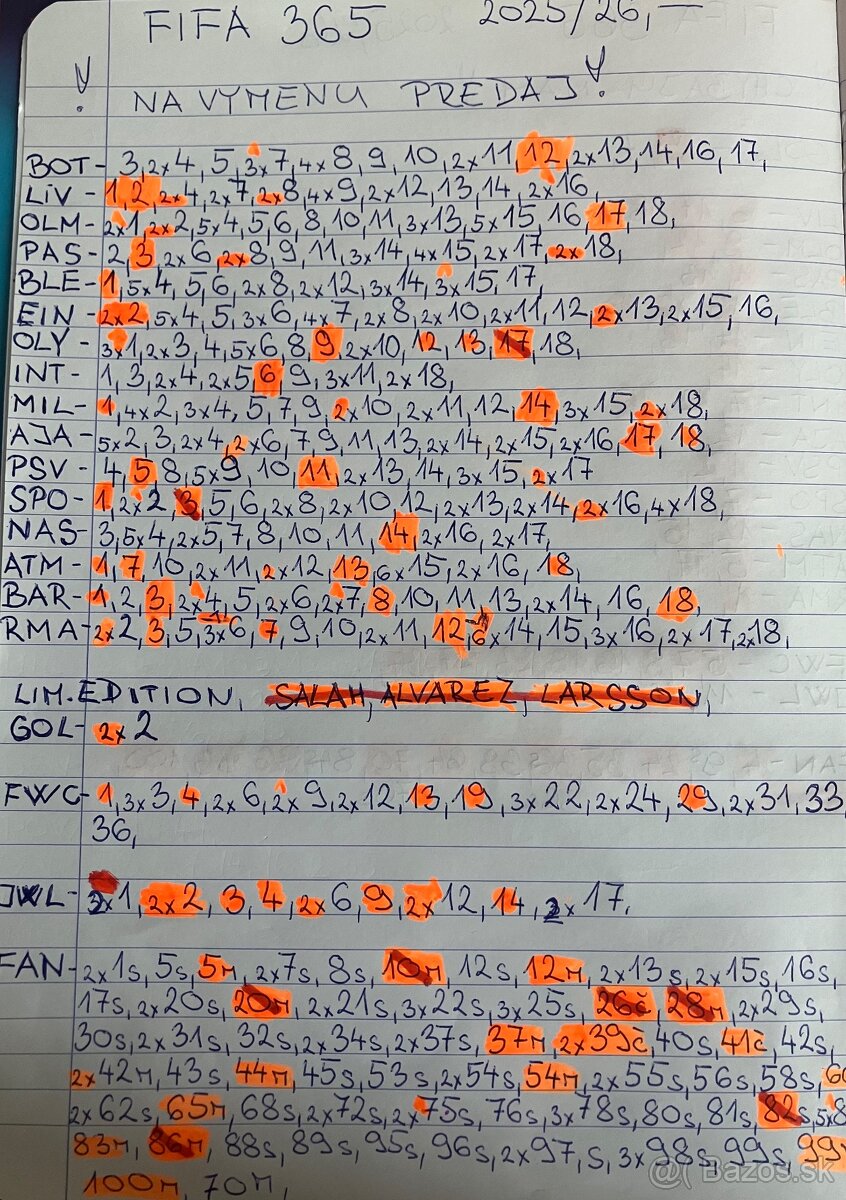 FIFA 365 2025/26,—
! NA VÝMENU PREDAJ !
BOT- 3, 2x4, 5, 3x7, 4x8, 9, 10, 2x11, 12, 2x13, 14, 16, 17,
LIV - 1, 2, 2x4, 2x7, 2x8, 4x9, 2x12, 13, 14, 2x16,
OLM- 2x1, 2x2, 5x4, 5, 6, 8, 10, 11, 3x13, 5x15, 16, 17, 18,
PAS- 2, 3, 2x6, 2x8, 9, 11, 3x14, 4x15, 2x17, 2x18,
BLE- 1, 5x4, 5, 6, 2x8, 2x12, 3x14, 3x15, 17,
EIN - 2x2, 5x4, 5, 3x6, 4x7, 2x8, 2x10, 2x11, 12, 2x13, 2x15, 16,
OLY - 3x1, 2x3, 4, 5x6, 8, 9, 2x10, 12, 13, 17, 18,
INT- 1, 3, 2x4, 2x5, 6, 9, 3x11, 2x18,
MIL- 1, 4x2, 3x4, 5, 7, 9, 2x10, 2x11, 12, 14, 3x15, 2x18,
AJA- 5x2, 3, 2x4, 2x6, 7, 9, 11, 13, 2x14, 2x15, 2x16, 17, 18,
PSV- 4, 5, 8, 5x9, 10, 11, 2x13, 14, 3x15, 2x17
SPO- 1, 2x2, 3, 5, 6, 2x8, 2x10, 12, 2x13, 2x14, 2x16, 4x18,
NAS- 3, 5x4, 2x5, 7, 8, 10, 11, 14, 2x16, 2x17,
ATM- 1, 7, 10, 2x11, 2x12, 13, 6x15, 2x16, 18,
BAR- 1, 2, 3, 2x4, 5, 2x6, 2x7, 8, 10, 11, 13, 2x14, 16, 18,
RMA- 2x2, 3, 5, 3x6, 7, 9, 10, 2x11, 12, 6x14, 15, 3x16, 2x17, 2x18,
LIM. EDITION, SALAH, ALVAREZ, LARSSON,
GOL- 2x2
FWC- 1, 3x3, 4, 2x6, 2x9, 2x12, 13, 19, 3x22, 2x24, 29, 2x31, 33,
36,
JWL- x1, 2x2, 3, 4, 2x6, 9, 2x12, 14, x17,
FAN- 2x1s, 5s, 5m, 2x7s, 8s, 10m, 12s, 12m, 2x13s, 2x15s, 16s,
17s, 2x20s, 20m, 2x21s, 3x22s, 3x25s, 26č, 28m, 2x29s,
30s, 2x31s, 32s, 2x34s, 2x37s, 37m, 2x39č, 40s, 41č, 42s,
2x42m, 43s, 44m, 45s, 53s, 2x54s, 54m, 2x55s, 56s, 58s,
2x62s, 65m, 68s, 2x72s, 2x75s, 76s, 3x78s, 80s, 81s, 82s,
83m, 86m, 88s, 89s, 95s, 96s, 2x97, s, 3x98s, 99s,
100m, 70m,
@( Bazos.sk